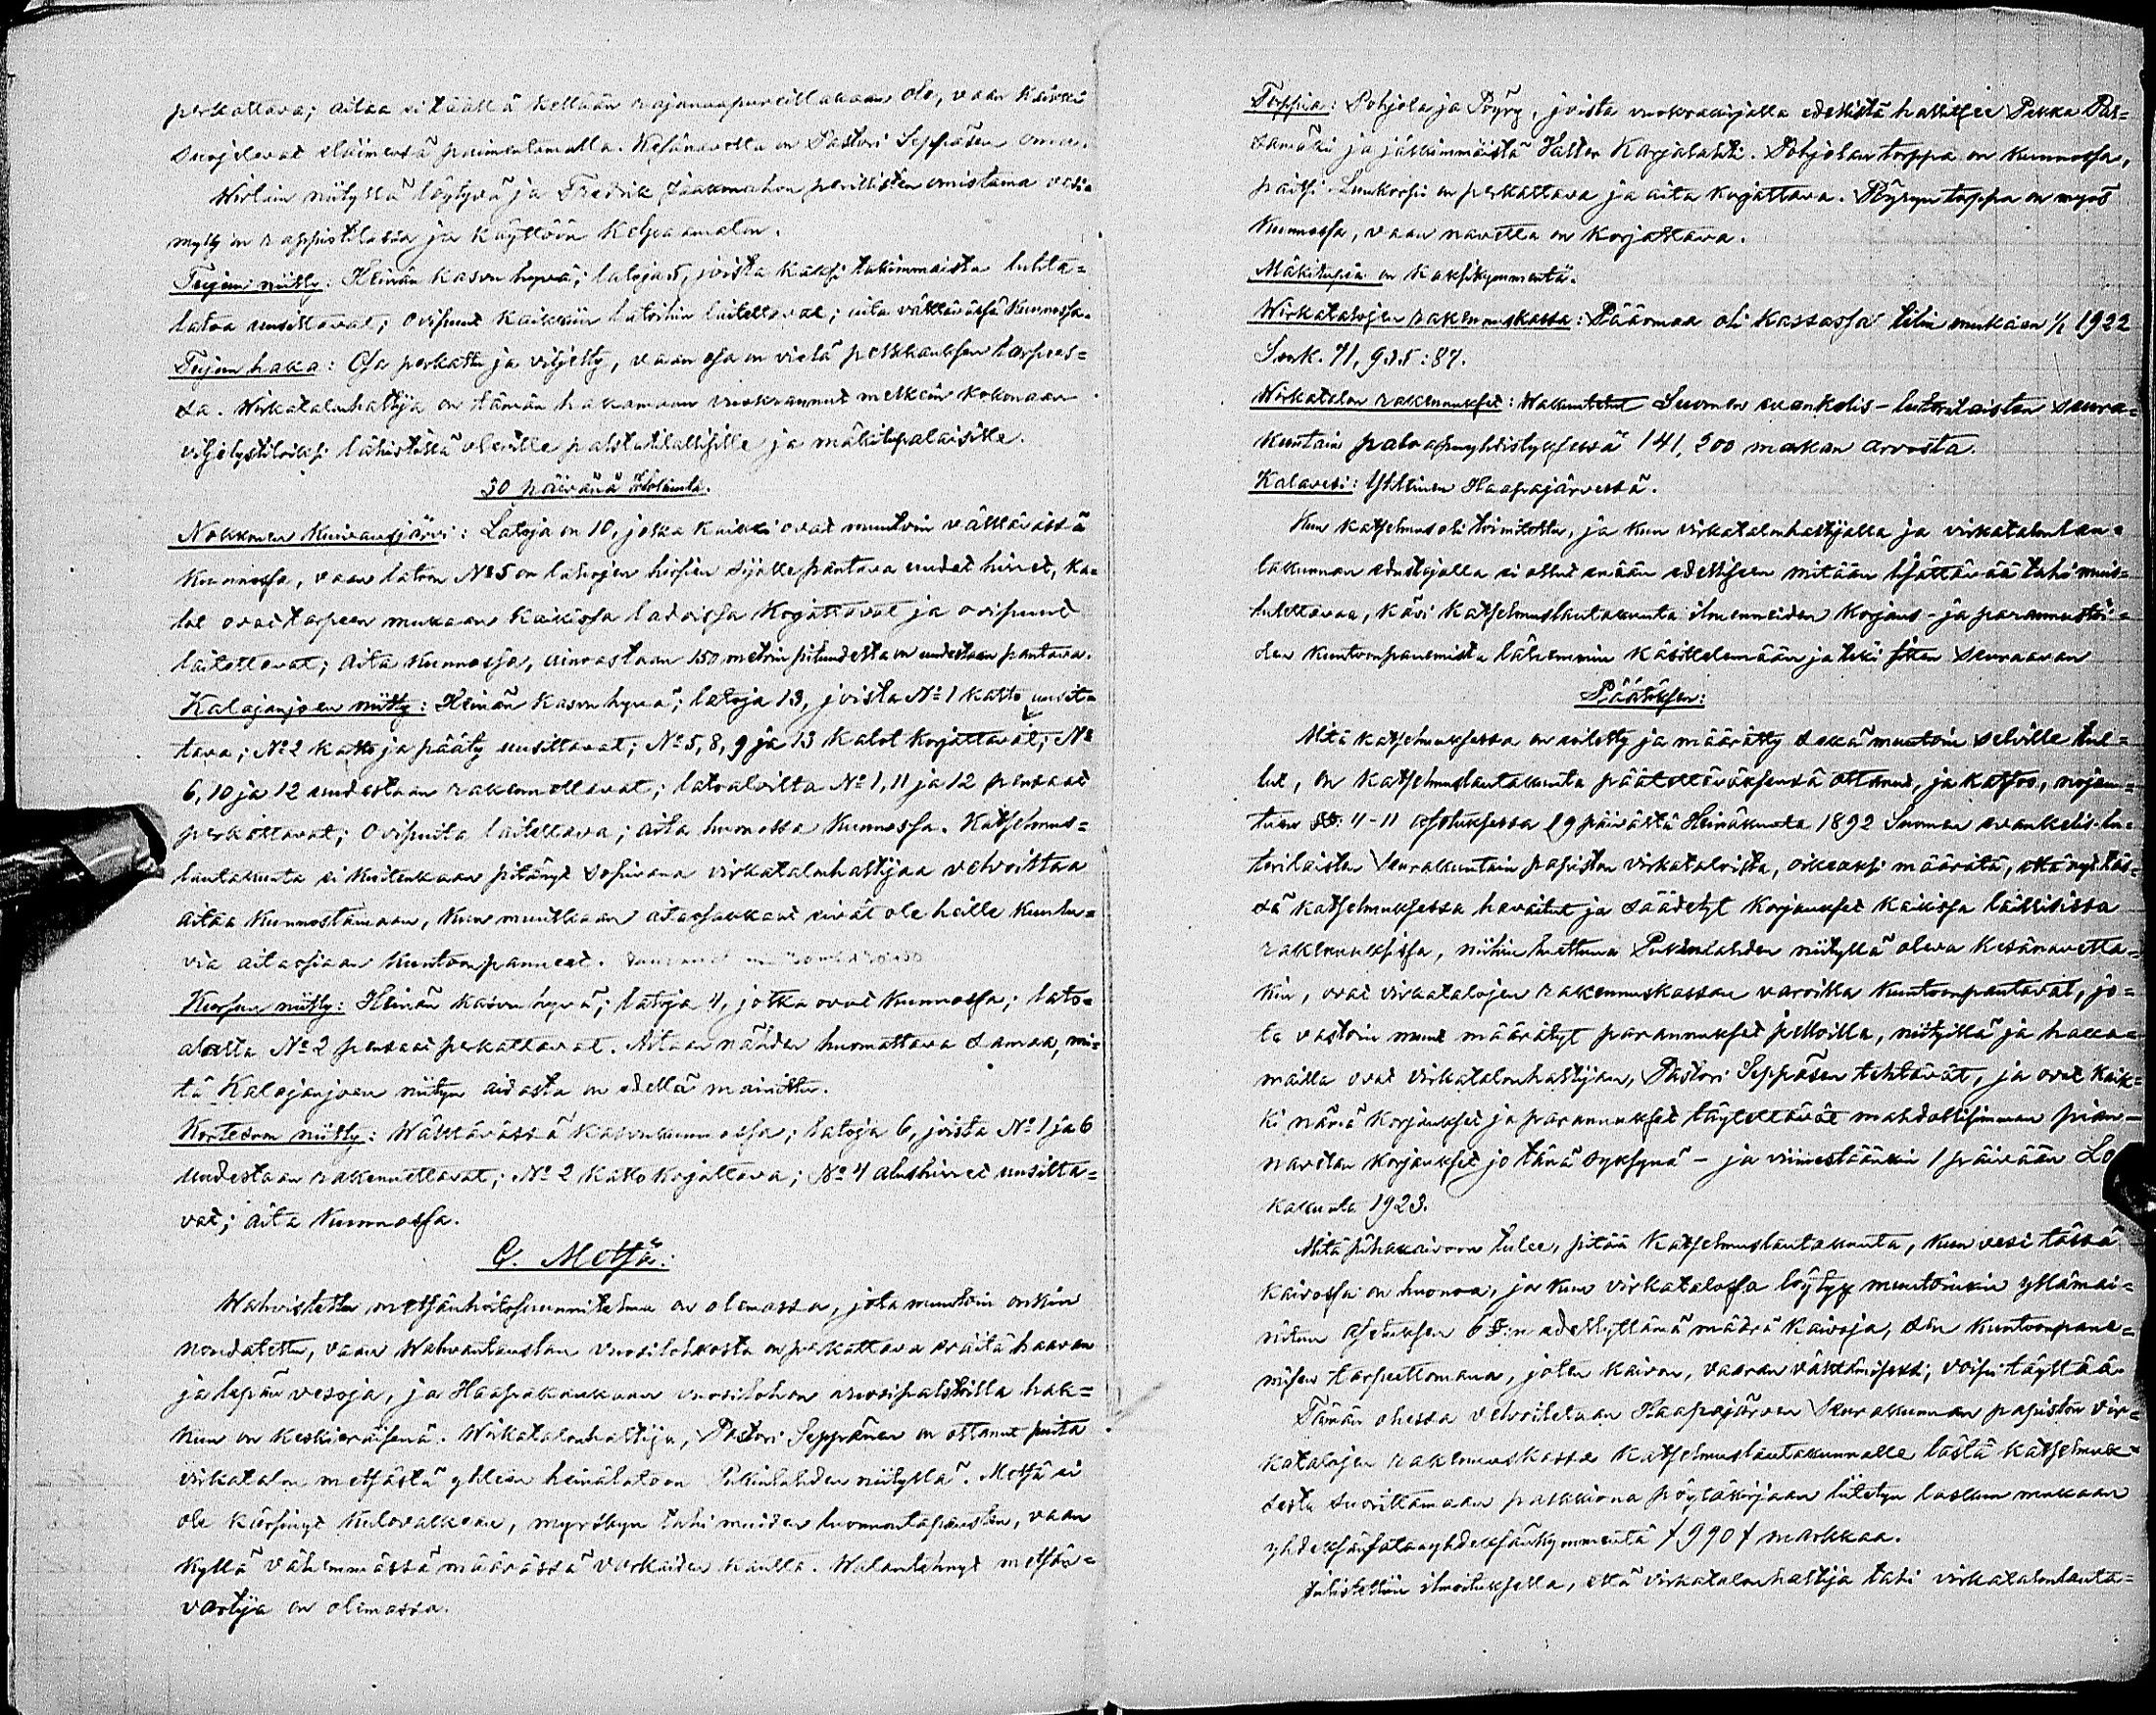 perkattava; aitaa ei täällä kellään rajanaapureillakaan ole, vaan kaikki
suojelevat eläimensä paimentamalla. Kesänavetta on Pastori Seppäsen oma.
Wirtain niityllä löytyvä ja Fredrik Jaakonahon perillisten omistama vesi=
mylly on rappiotilassa ja käyttöön kelpaamaton.
Teijun niitty: Heinän kasvu hyvä; latoja 5, joista kaksi takimmaista luhta=
latoa uusittavat; ovipuut kaikkiin latoihin laitettavat; aita välttävässä kunnossa.
Teijun haka: Osa perkattu ja viljelty, vaan osa on vielä perkkauksen tarpees=
sa. Wirkatalonhaltija on tämän hakamaan vuokrannut melkein kokonaan
viljelystiloiksi lähistöllä oleville palstatilallisille ja mäkitupalaisille.
30 päivänä Elokuuta.
Nokkouen Kuivausjärvi: Latoja on 10, jotka kaikki ovat muutoin välttävässä
kunnossa, vaan latoon № 5 on lahojen hirsien sijalle pantava uudet hirret, ka=
tot ovat tarpeen mukaan kaikissa ladoissa korjattavat ja ovipuut
laitettavat; aita kunnossa, ainoastaan 150 metrin pituudelta on uudestaan pantava.
Kalajanjoen niitty: Heinän kasvu hyvä; latoja 13, joista № 1 katto uusit=
tava; № 2 katto ja pääty uusittavat; № 5, 8, 9 ja 13 katot korjattavat; №
6, 10 ja 12 uudestaan rakennettavat; latoaloilta № 1, 11 ja 12 pensaat
perkattavat; ovipuita laitettava; aita huonossa kunnossa. Katselmus=
lautakunta ei kuitenkaan pitänyt sopivana virkatalonhaltijaa velvoittaa
aitaa kunnostamaan, kun muutkaan aitaosakkaat eivät ole heille kuulu=
via aitaosiaan kuntoonpanneet.
Korpun niitty: Heinän kasvu hyvä; latoja 4, jotka ovat kunnossa; lato=
alalta № 2 pensaat perkattavat. Aitaan nähden huomattava samaa, mi=
tä Kalajanjoen niityn aidasta on edellä mainittu.
Kortesuon niitty: Wälttävässä kasvukunnossa; latoja 6, joista № 1 ja 6
uudestaan rakennettavat; № 2 katto korjattava; № 4 alushirret uusitta=
vat; aita kunnossa.
G. Metsä:
Wahvistettu metsänhoitosuunnitelma on olemassa, jota muutoin onkin
noudatettu, vaan Wahvantaustan vuosilohkosta on perkattava eräitä haavan
ja lepän vesoja, ja Haapakankaan vuosilohon vuosipalstoilla hak=
kuu on keskieräisenä. Wirkatalonhaltija, Pastori Seppänen on ottanut puita
virkatalon metsästä yhteen heinälatoon Pukinlahden niityllä. Metsä ei
ole kärsinyt kulovalkean, myrskyn tahi muiden luonnontapausten, vaan
kyllä vähemmässä määrässä varkaiden kautta. Walantehnyt metsän=
vartija on olemassa.
Torppia: Pohjola ja Pöyry, joista vuokrakirjalla edellistä hallitsee Pekka Pas=
samäki ja jälkimmäistä Valter Karjalahti. Pohjolan torppa on kunnossa,
paitsi Luukorpi on perkattava ja aita korjattava. Pöyryn torppa on myös
kunnossa, vaan navetta on korjattava.
Mäkitupia on kaksikymmentä.
Wirkatalojen rakennuskassa: Pääomaa oli kassassa tilin mukaan 1/1 1922
Smk. 71,935:87.
Wirkatalon rakennukset: Wakuutetut Suomen evankelis-luterilaisten seura=
kuntain paloapuyhdistyksessä 141,200 markan arvosta.
Kalavesi: Yhteinen Haapajärvessä.
Kun katselmus oli toimitettu, ja kun virkatalonhaltijalla ja virkatalonlau=
takunnan edustajalla ei ollut enään edelliseen mitään lisättävää tahi muis=
tutettavaa, kävi katselmuslautakunta ilmenneiden korjaus- ja parannustöi=
den kuntoonpanemista lähemmin käsittelemään ja teki sitten seuraavan
Päätöksen:
Mitä katselmuksessa on esitetty ja määrätty sekä muutoin selville tul=
lut, on katselmuslautakunta päätettäväksensä ottanut, ja katsoo, nojau=
tuen §§: 4-11 asetuksessa 19 päivästä Heinäkuuta 1892 Suomen evankelis-lu=
terilaisten seurakuntain papiston virkataloista, oikeaksi määrätä, että nyt täs=
sä katselmuksessa havaitut ja säädetyt korjaukset kaikissa laillisissa
rakennuksissa, niihin luettuna Pukinlahden niityllä oleva kesänavetta=
kin, ovat virkatalojen rakennuskassan varoilla kuntoonpantavat, jo=
ta vastoin muut määrätyt parannukset pelloilla, niityillä ja haka=
mailla ovat virkatalonhaltijan, Pastori Seppäsen tehtävät, ja ovat kaik=
ki nämä korjaukset ja parannukset täytettävät mahdollisimman pian –
navetan korjaukset jo tänä syksynä – ja viimestäänkin 1 päivään Lo
kakuuta 1923.
Mitä pihakaivoon tulee, pitää katselmuslautakunta, kun vesi tässä
kaivossa on huonoa, ja kun virkatalossa löytyy muutoinkin yllämai=
nitun asetuksen 6 §:n edellyttämä määrä kaivoja, sen kuntoonpane=
misen tarpeettomana, joten kaivon, vaaran välttämiseksi, voipi täyttää.
Tämän ohessa velvoitetaan Haapajärven seurakunnan papiston vir=
katalojen rakennuskassa katselmuslautakunnalle tästä katselmuk=
sesta suorittamaan palkkiona pöytäkirjaan liitetyn laskun mukaan
yhdeksänsataayhdeksänkymmentä / 990 / markkaa.
Julistettiin ilmoituksella, että virkatalonhaltija tahi virkatalonlauta=